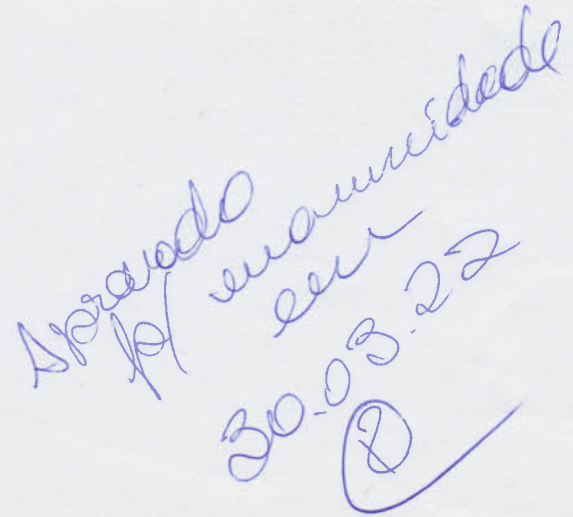 Aprovado
p/ unanimidade
em
30.03.22